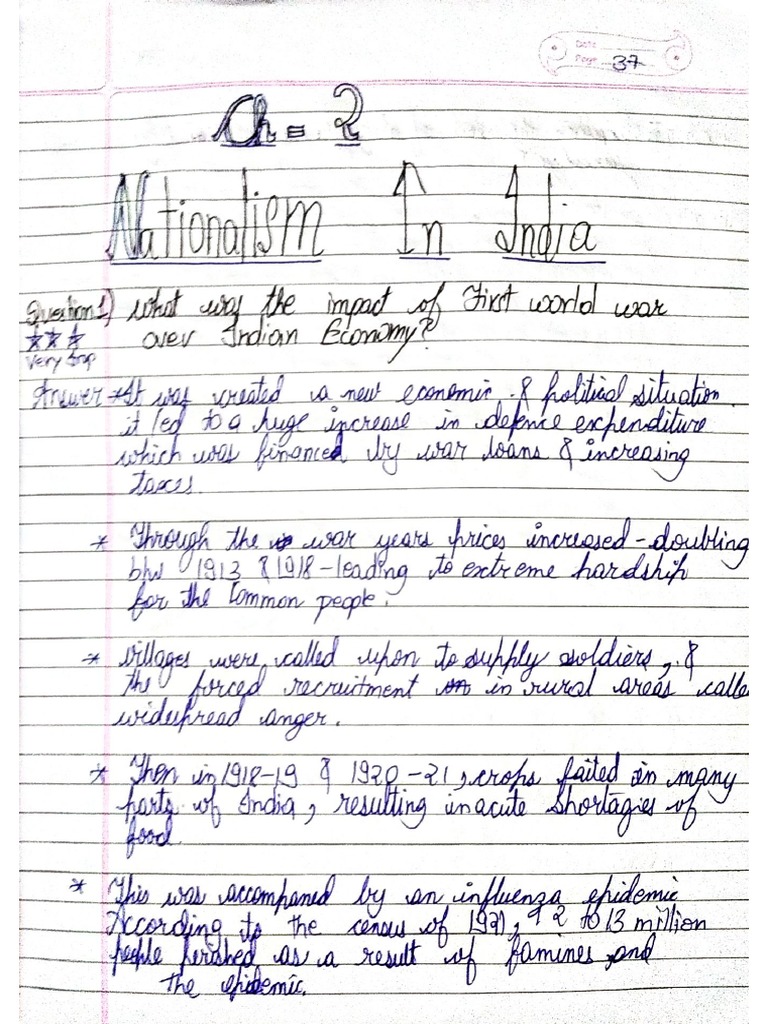 Date
Page 37
Ch = 2
Nationalism In India
Question 1) what was the impact of First world war
★★★ over Indian Economy?
Very Imp
Answer * It was created a new economic & political situation.
it led to a huge increase in defence expenditure
which was financed by war loans & increasing
taxes.
* Through the war years prices increased - doubling
b/w 1913 & 1918 - leading to extreme hardship
for the Common people.
* villages were called upon to supply soldiers, &
the forced recruitment in rural areas called
widespread anger.
* Then in 1918-19 & 1920-21, crops failed in many
parts of India, resulting in acute shortagies of
food.
* This was accompaned by an influenza epidemic
According to the census of 1921, 12 to 13 million
people perished as a result of famines, and
the epidemic.